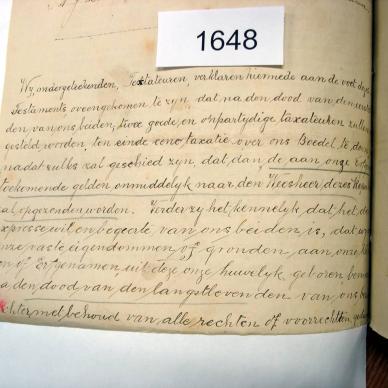 1648
Wij, ondergeteekenden, Testateuren, verklaren hiermede aan de voet dezes
Testaments overeengekomen te zyn, dat, na den dood van den eerste
den, van ons, beiden, twee goede, en onpartydige taxateuren zullen
gesteld, worden, ten einde eene, taxatie over ons Boedel te doen
nadat zulks zal geschied zyn, dat, dan, de aan, onze
toekomende gelden onmiddelyk naar, den Weesheer, dezes
zal opgezonden worden. Verder zy het, kennelyk, dat, het, de
expresse wil en begeerte van, ons beiden is, dat
vaste eigendommen of gronden, aan, onze
of Erfgenamen, uit deze onze huwelyk, geboren,
den, dood van den langstlevenden van, ons
Echter met behoud van, alle, rechten of voorrechten